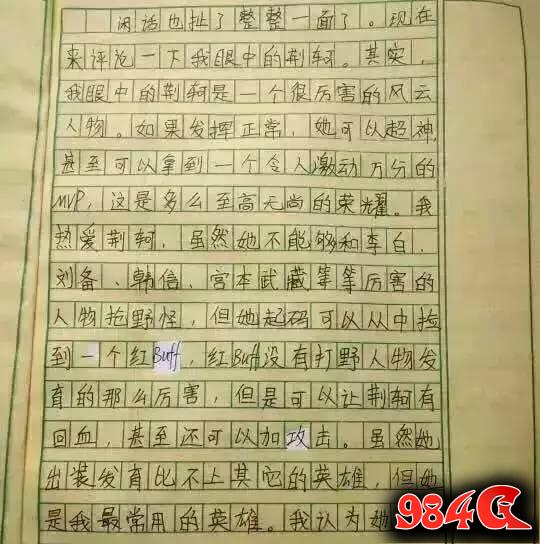 闲话也扯了整整一面了。现在
来评论一下我眼中的荆轲。其实，
我眼中的荆轲是一个很厉害的风云
人物。如果发挥正常，她可以超神，
甚至可以拿到一个令人激动万分的
MVP，这是多么至高无尚的荣耀。我
热爱荆轲，虽然她不能够和李白、
刘备、韩信、宫本武藏等等厉害的
人物抢野怪，但她起码可以从中捡
到一个红Buff，红Buff没有打野人物发
育的那么厉害，但是可以让荆轲有
回血，甚至还可以加攻击。虽然她
出装发育比不上其它的英雄，但她
是我最常用的英雄。我认为她
984G